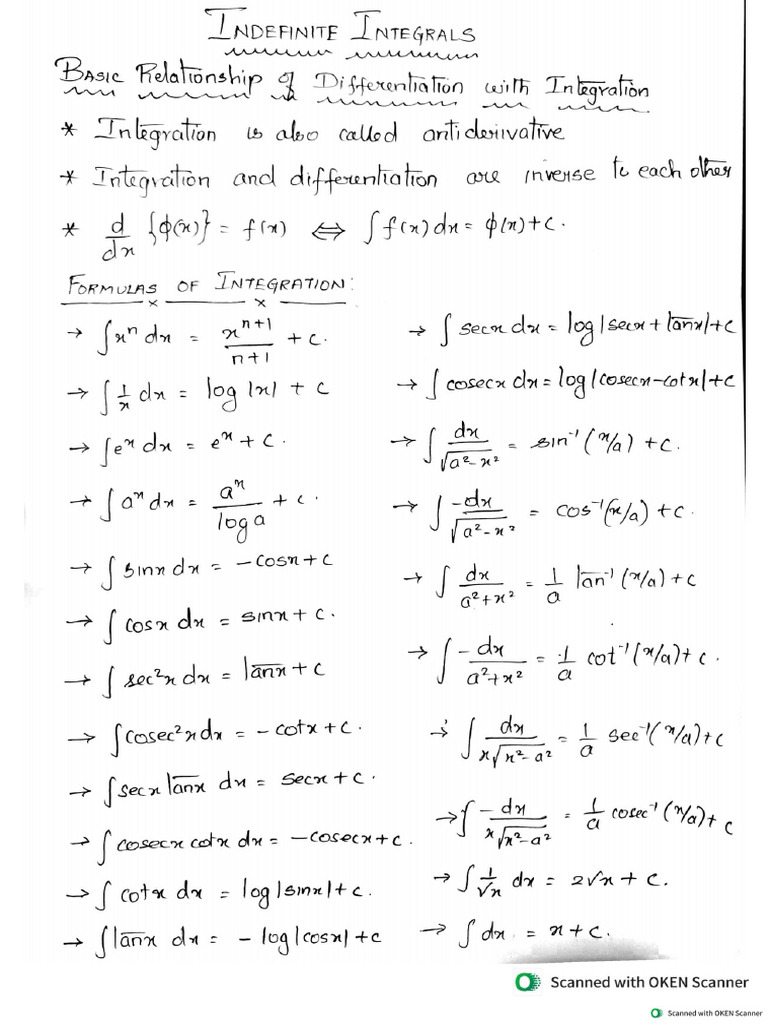 INDEFINITE INTEGRALS
BASIC Relationship of Differentiation with Integration
* Integration is also called antiderivative
* Integration and differentiation are inverse to each other
* d/dx {φ(x)} = f(x) ⇔ ∫f(x)dx = φ(x)+c.
FORMULAS OF INTEGRATION:
→ ∫xⁿ dx = xⁿ⁺¹/n+1 + c.
→ ∫1/x dx = log|x| + c
→ ∫eˣ dx = eˣ + c.
→ ∫aˣ dx = aˣ/log a + c.
→ ∫sinx dx = -cosx + c
→ ∫cosx dx = sinx + c.
→ ∫sec²x dx = tanx + c
→ ∫cosec²x dx = -cotx + c.
→ ∫secx tanx dx = secx + c.
→ ∫cosecx cotx dx = -cosecx + c.
→ ∫cotx dx = log|sinx| + c.
→ ∫tanx dx = -log|cosx| + c
→ ∫secx dx = log|secx + tanx| + c
→ ∫cosecx dx = log|cosecx - cotx| + c
→ ∫dx/√a²-x² = sin⁻¹(x/a) + c.
→ ∫-dx/√a²-x² = cos⁻¹(x/a) + c.
→ ∫dx/a²+x² = 1/a tan⁻¹(x/a) + c
→ ∫-dx/a²+x² = 1/a cot⁻¹(x/a) + c.
→ ∫dx/x√x²-a² = 1/a sec⁻¹(x/a) + c
→ ∫-dx/x√x²-a² = 1/a cosec⁻¹(x/a) + c
→ ∫1/√x dx = 2√x + c.
→ ∫dx = x + c.
Scanned with OKEN Scanner
Scanned with OKEN Scanner